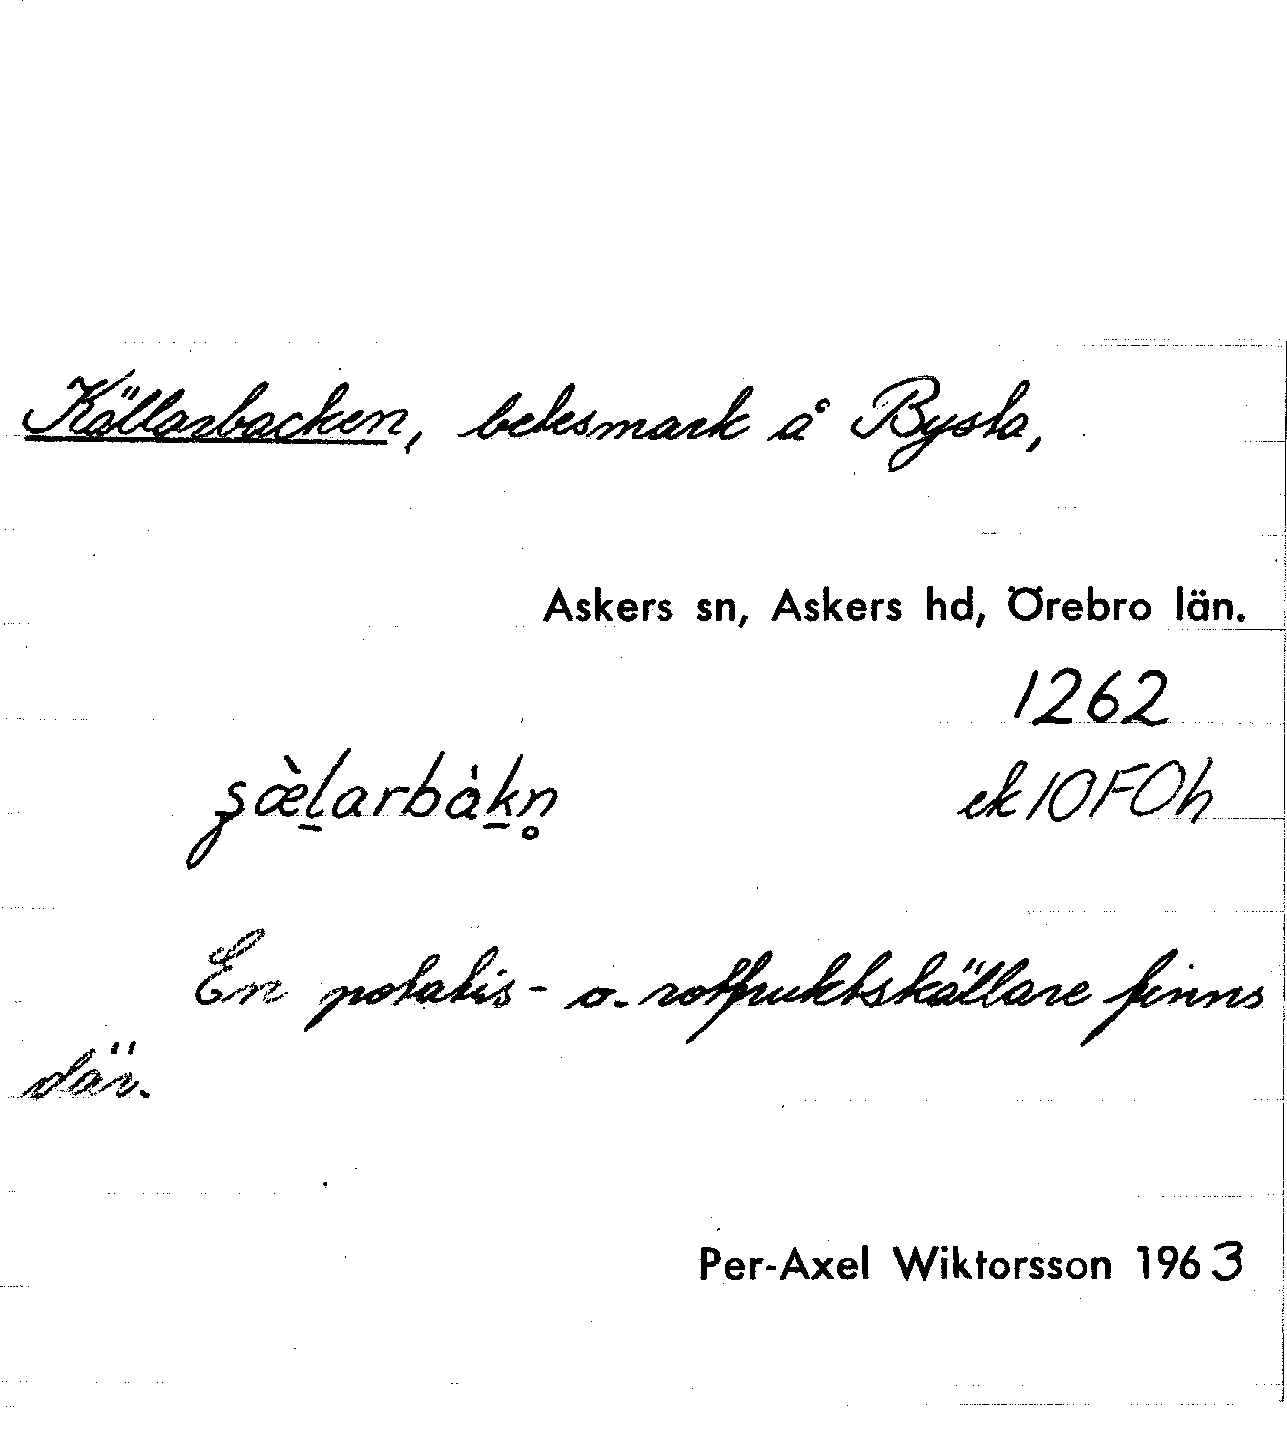 Källarbacken, betesmark å Bysta,
Askers sn, Askers hd, Örebro län.
1262
ek 10 F 0 h
En potatis- o. rotfruktskällare finns
där.
Per-Axel Wiktorsson 1963